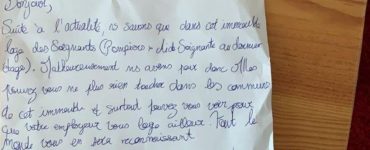 Bonjour,
Suite à l'actualité, ns savons que dans cet immeuble
loge des Soignants (Pompiers + Aide Soignante au dernier
étage). Malheureusement ns avons peur donc
pouvez vous ne plus rien toucher dans les communs
de cet immeuble et surtout pouvez vous voir pour
que votre employeur vous loge ailleurs. Tout le
monde vous en sera reconnaissant